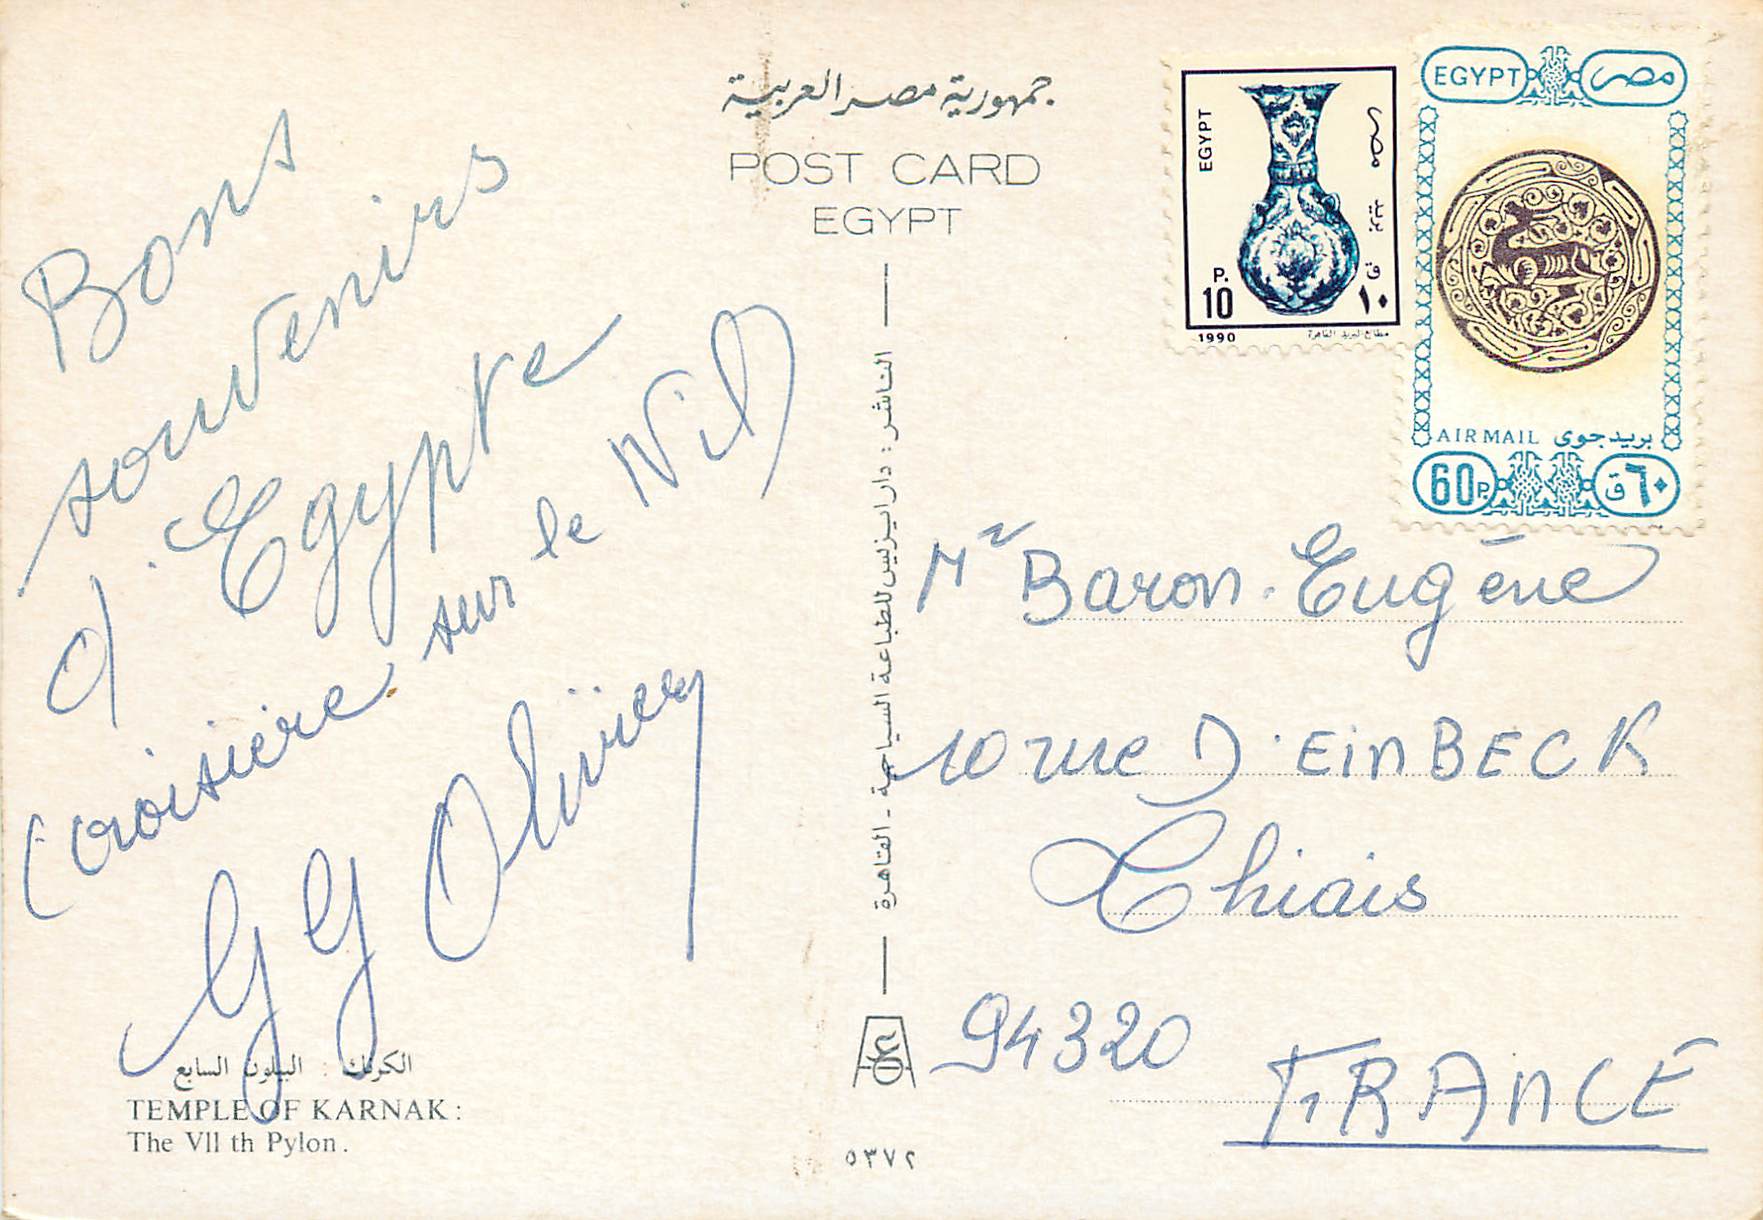 جمهورية مصر العربية
POST CARD
EGYPT
Bons
souvenirs
d'Egypte
(croisière sur le Nil)
GG Olivier
الكرنك : البيلون السابع
TEMPLE OF KARNAK :
The VII th Pylon .
الناشر : دار ايزيس للطباعة السياحية - القاهرة
٥٣٧٢
EGYPT
مصر
بريد
P.
10
ق
١٠
1990
مطابع البريد القاهرة
EGYPT مصر
AIR MAIL بريد جوى
60P. ٦٠ ق
Mr Baron. Eugène
10 rue D'EinBECK
Thiais
94320
FRAnCE